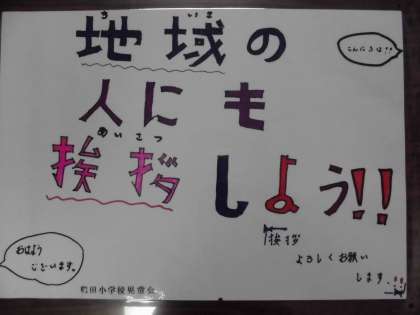 こんにちは!!
ち いき
地域の
人にも
あいさつ
挨拶しよう!!
挨拶
よろしくお願い
します
おはよう
ございます。
小学校児童会